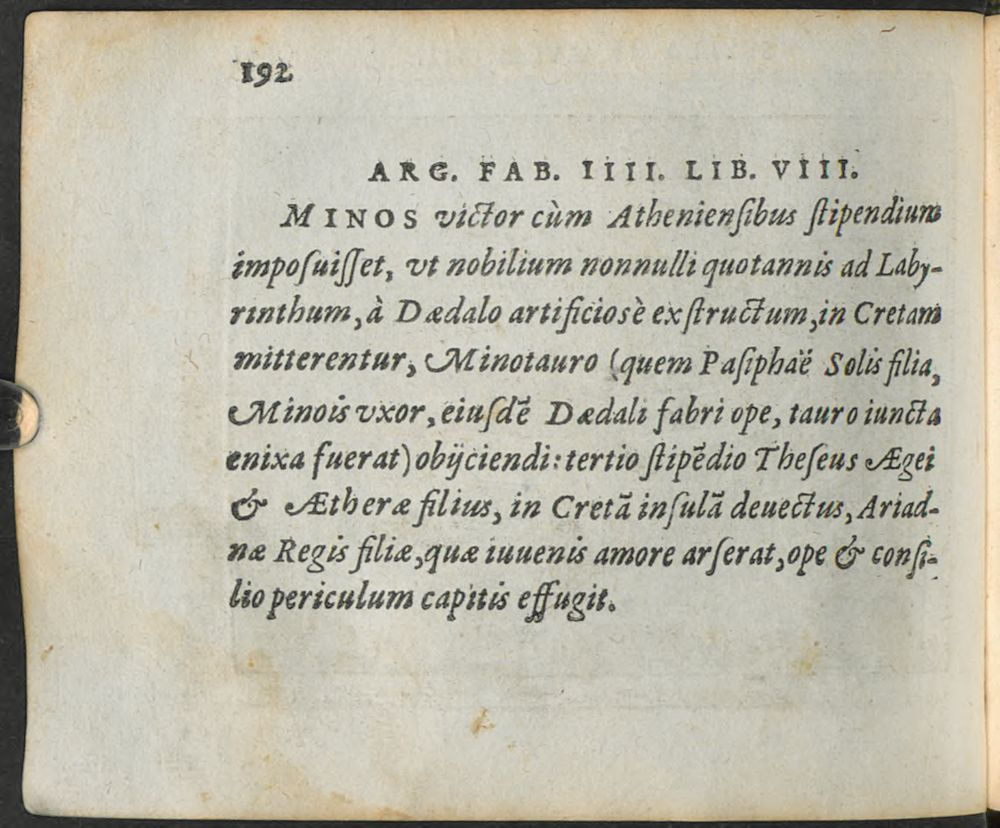 192
ARG. FAB. IIII. LIB. VIII.
MINOS victor cùm Atheniensibus stipendium
imposuisset, vt nobilium nonnulli quotannis ad Laby-
rinthum, à Dædalo artificiosè exstructum, in Cretam
mitterentur, Minotauro (quem Pasiphaë Solis filia,
Minois vxor, eiusdẽ Dædali fabri ope, tauro iuncta
enixa fuerat) obijciendi: tertio stipẽdio Theseus Ægei
& Ætheræ filius, in Cretã insulã deuectus, Ariad-
næ Regis filiæ, quæ iuuenis amore arserat, ope & consi-
lio periculum capitis effugit.